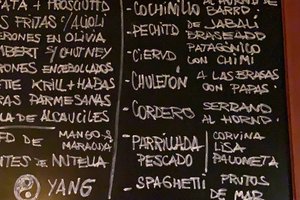 ATA + PROSCIUTTO
S FRITAS C/ALIOLI
ERONES EN OLIVIA
MBERT S/CHUTNEY
RONES ENCEBOLLADOS
TE KRILL + HABAS
RAS PARMESANAS
LA DE ALCAUCILES
ED DE MANGO & MARACUJA
NTES DE NITELLA
YANG
- COCHINILLO AL HORNO DE BARRO
- PECHITO DE JABALÍ BRASEADO
- CIERVO PATAGÓNICO CON CHIMI
- CHULETÓN A LAS BRASAS CON PAPAS
- CORDERO SERRANO AL HORNO
- PARRILLADA PESCADO CORVINA LISA PALOMETA
- SPAGHETTI FRUTOS DE MAR